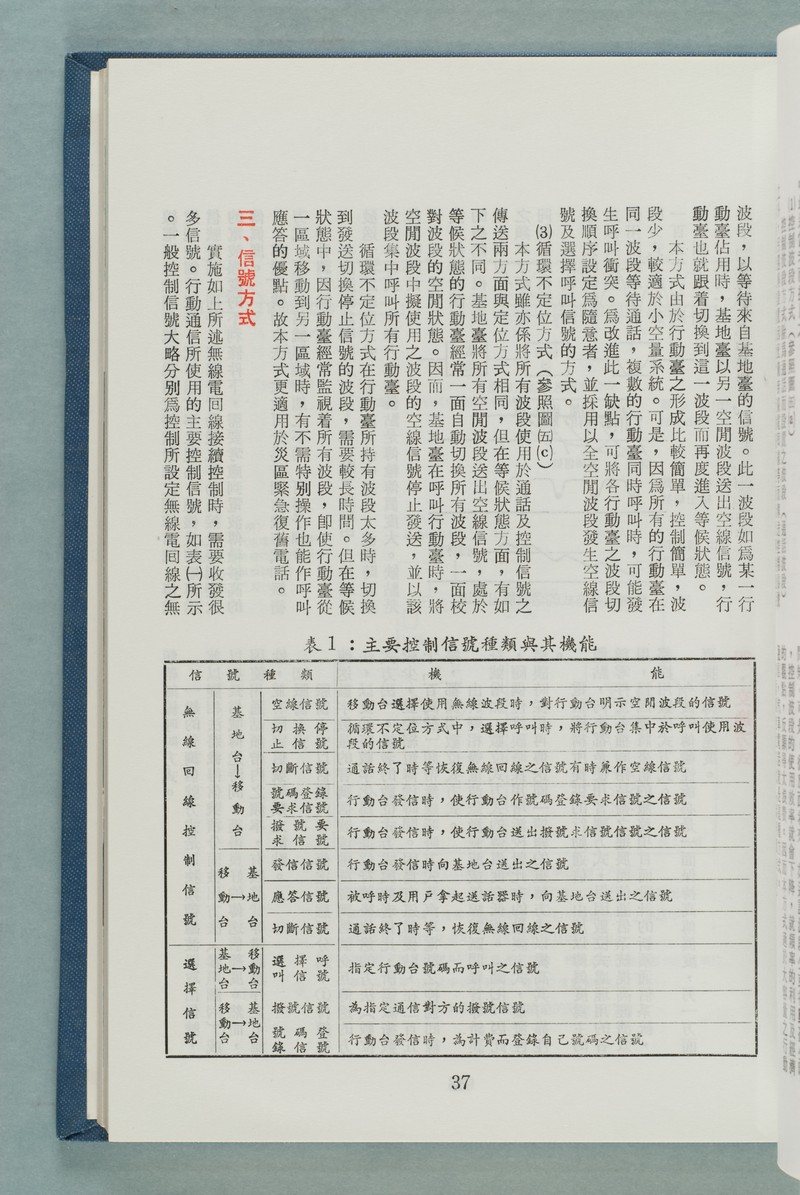 波段，以等待來自基地臺的信號。此一波段如為某一行
動臺佔用時，基地臺以另一空閒波段送出空線信號，行
動臺也就跟着切換到這一波段而再度進入等候狀態。
本方式由於行動臺之形成比較簡單，控制簡單，波
段少，較適於小空量系統。可是，因為所有的行動臺在
同一波段等待通話，複數的行動臺同時呼叫時，可能發
生呼叫衝突。為改進此一缺點，可將各行動臺之波段切
換順序設定為隨意者，並採用以全空閒波段發生空線信
號及選擇呼叫信號的方式。
⑶循環不定位方式（參照圖㈤(c)）
本方式雖亦係將所有波段使用於通話及控制信號之
傳送兩方面與定位方式相同，但在等候狀態方面，有如
下之不同。基地臺將所有空閒波段送出空線信號，處於
等候狀態的行動臺經常一面自動切換所有波段，一面校
對波段的空閒狀態。因而，基地臺在呼叫行動臺時，將
空閒波段中擬使用之波段的空線信號停止發送，並以該
波段集中呼叫所有行動臺。
循環不定位方式在行動臺所持有波段太多時，切換
到發送切換停止信號的波段，需要較長時間。但在等候
狀態中，因行動臺經常監視着所有波段，卽使行動臺從
一區域移動到另一區域時，有不需特別操作也能作呼叫
應答的優點。故本方式更適用於災區緊急復舊電話。
三、信號方式
實施如上所述無線電回線接續控制時，需要收發很
多信號。行動通信所使用的主要控制信號，如表㈠所示
。一般控制信號大略分別為控制所設定無線電回線之無
表1：主要控制信號種類與其機能
信號種類 機能
無線回線控制信號
基地台→移動台
空線信號 移動台選擇使用無線波段時，對行動台明示空閒波段的信號
切換停止信號 循環不定位方式中，選擇呼叫時，將行動台集中於呼叫使用波
段的信號
切斷信號 通話終了時等恢復無線回線之信號有時兼作空線信號
號碼登錄要求信號 行動台發信時，使行動台作號碼登錄要求信號之信號
撥號要求信號 行動台發信時，使行動台送出撥號求信號信號之信號
移動台→基地台
發信信號 行動台發信時向基地台送出之信號
應答信號 被呼時及用戶拿起送話器時，向基地台送出之信號
切斷信號 通話終了時等，恢復無線回線之信號
選擇信號
基地台→移動台
選擇呼叫信號 指定行動台號碼而呼叫之信號
移動台→基地台
撥號信號 為指定通信對方的撥號信號
號碼登錄信號 行動台發信時，為計費而登錄自己號碼之信號
37